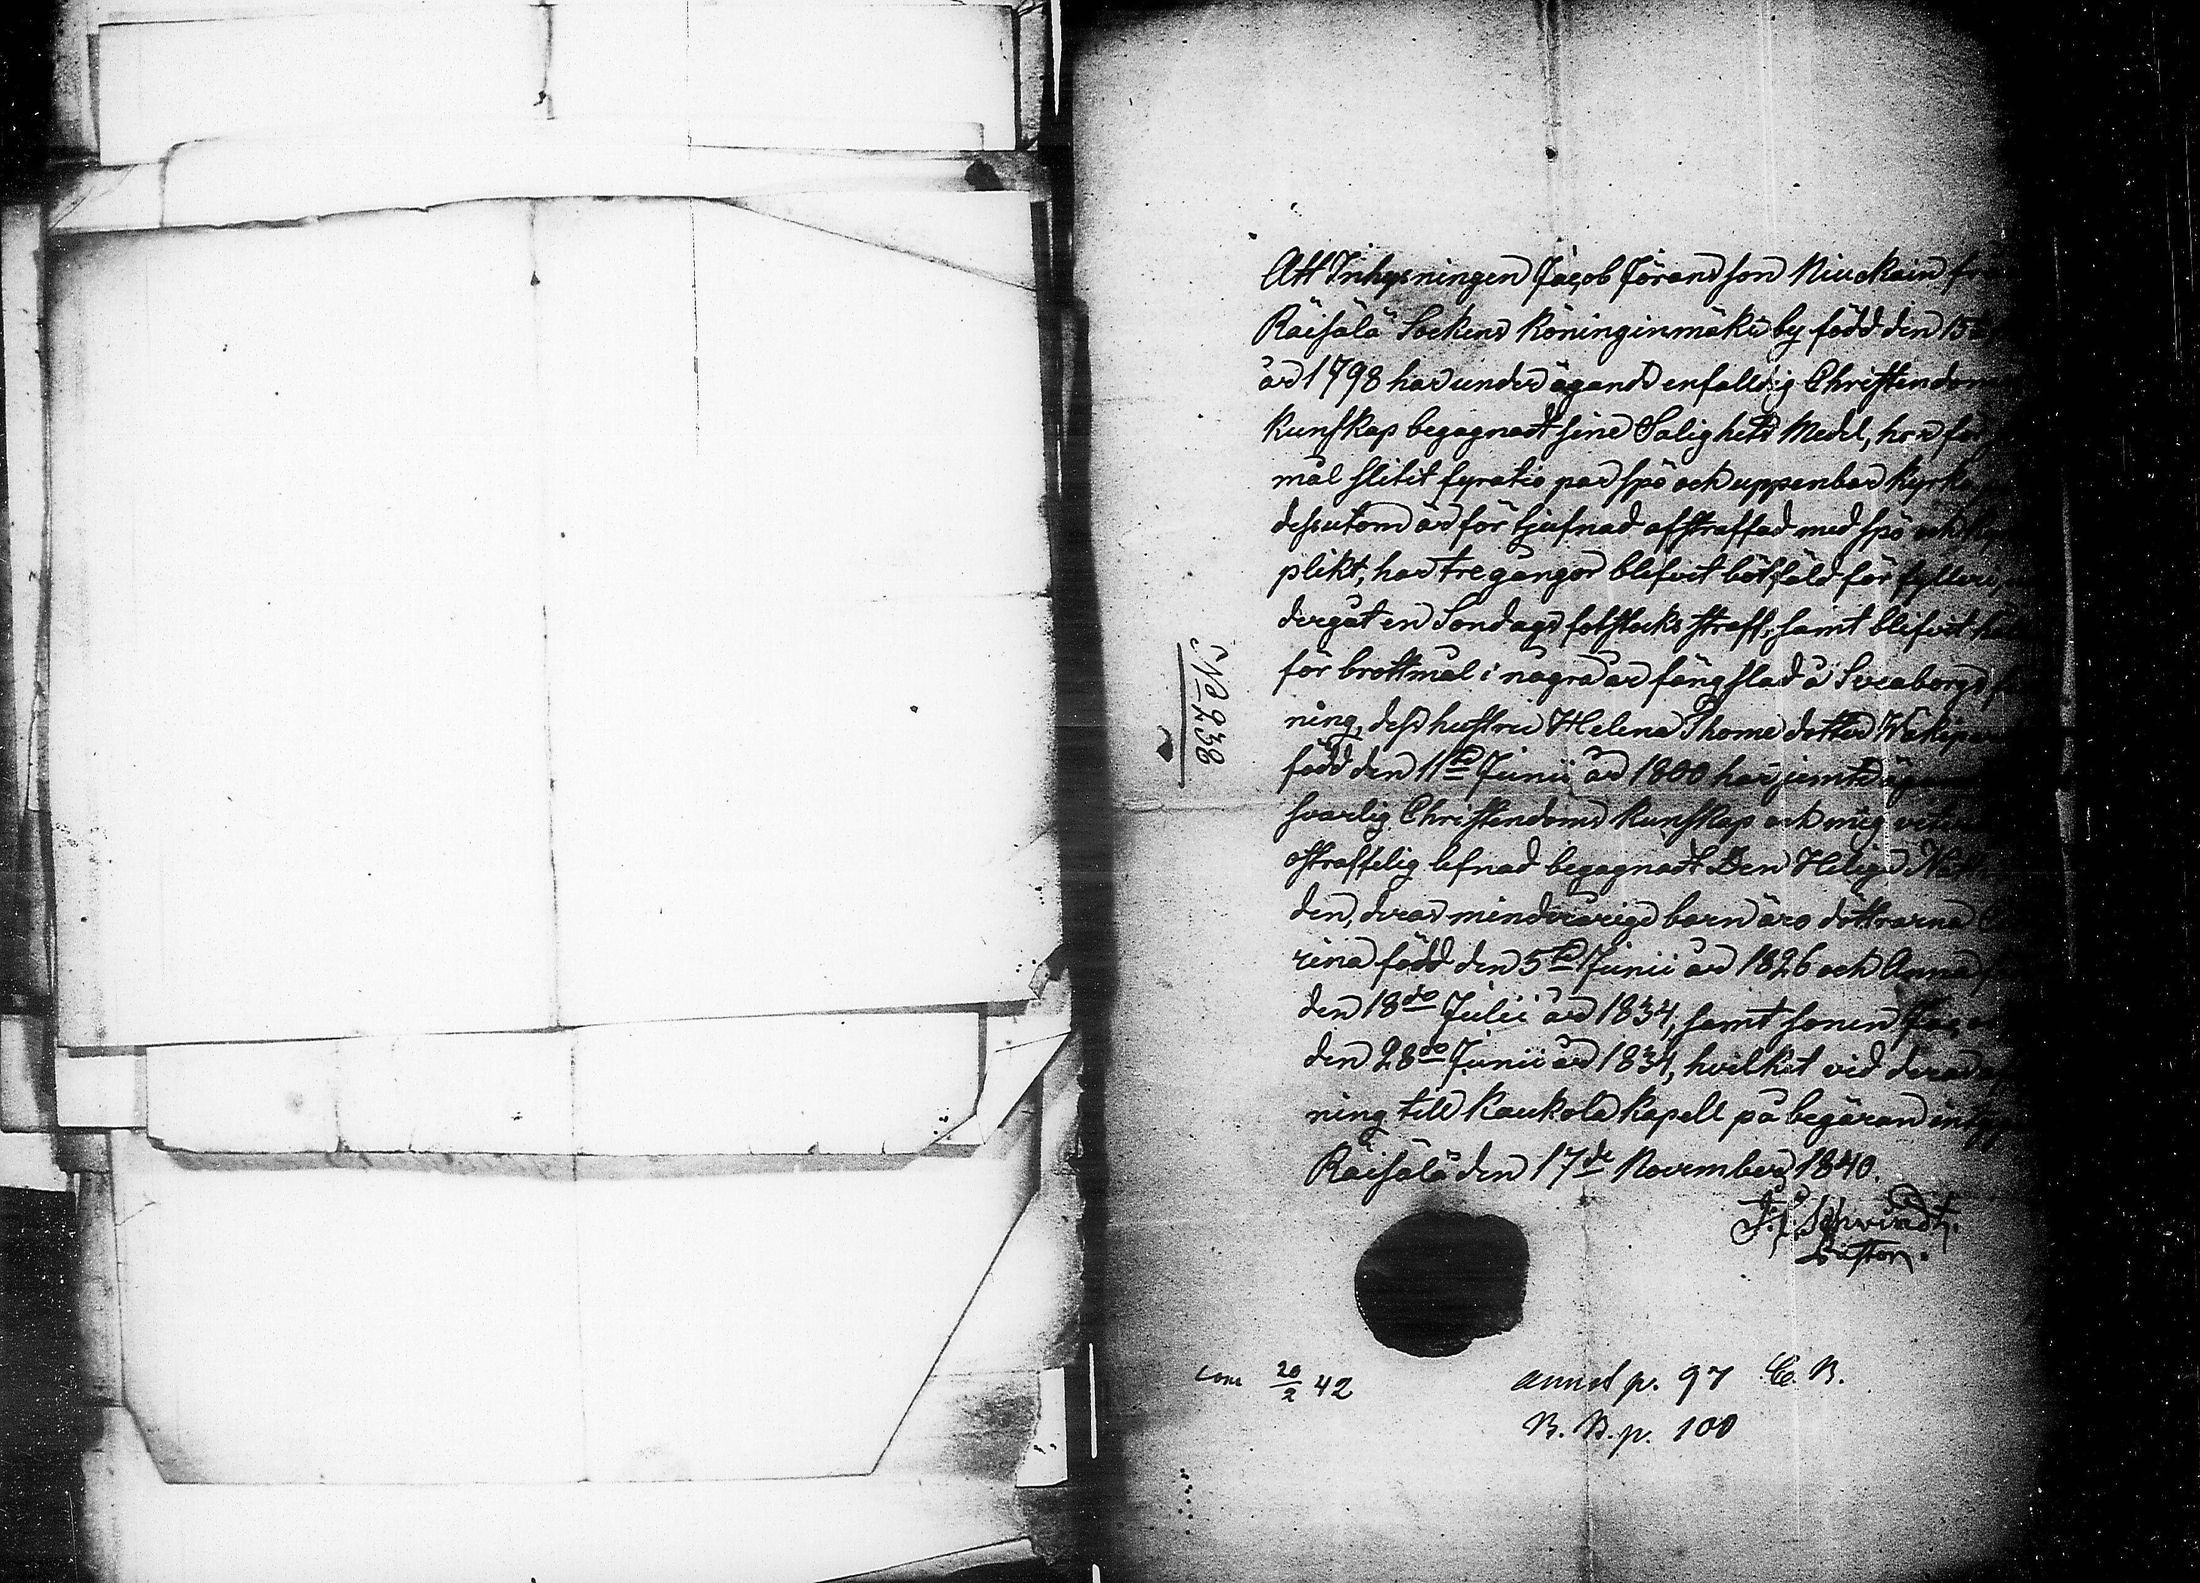 Att Inhysningen Jacob Jöransson Niuckain
Räisälä Sockens Köninginmäki by född den 15
år 1798 har under ägande enfalldig Christendoms
kunskap begagnadt sine Salighets Medel, har för
mål slitit fyratio par spö och uppenbar kyrko
dessutom är för tjufnad afstraffad med spö och
plikt, har tre gångor blifvit bötfäld för fylleri,
dergåt en Söndags fotstocks straff, samt blifvit
för brottmål i några år fängslad å Sveaborgs
ning, dess hustru Helena Thome dotter
född den 11te Junii år 1800 har jemte
svarlig Christendoms kunskap och mig
ostraffelig lefnad begagnadt Den Helige
den, deras minderårige barn äro döttrarna
rina född den 5te Junii år 1826 och Anna
den 18de Julii år 1834, samt sonen
den 28de Junii år 1834, hvilket vid deras
ning till Kaukola kapell på begäran
Räisälä den 17de November 1840.
Schvindt.
Pastor.
No 238
20/2 42 annot p. 97 C. B.
B. B. p. 100